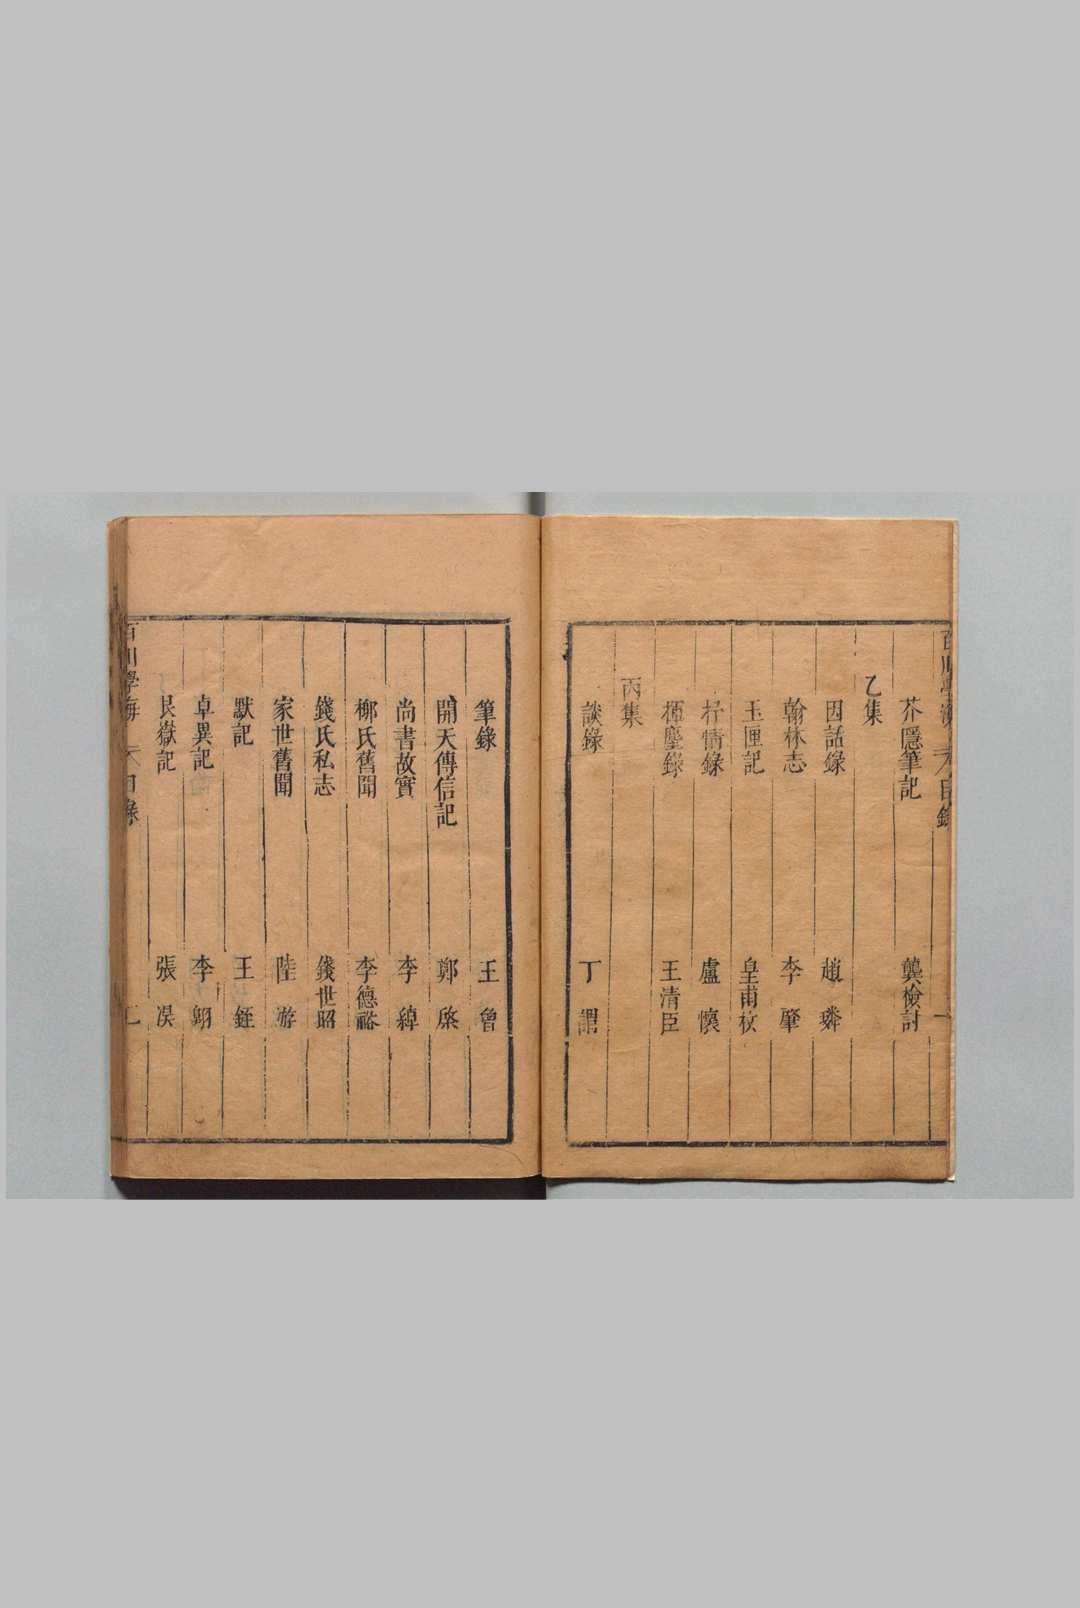 百川學海 目錄 一
芥隱筆記 龔檢討
乙集
因話錄 趙璘
翰林志 李肇
玉匣記 皇甫枚
抒情錄 盧懷
揮麈錄 王清臣
丙集
談錄 丁謂
筆錄 王曾
開天傳信記 鄭棨
尚書故實 李綽
柳氏舊聞 李德裕
錢氏私志 錢世昭
家世舊聞 陸游
默記 王銍
卓異記 李翱
艮嶽記 張淏
百川學海 目錄